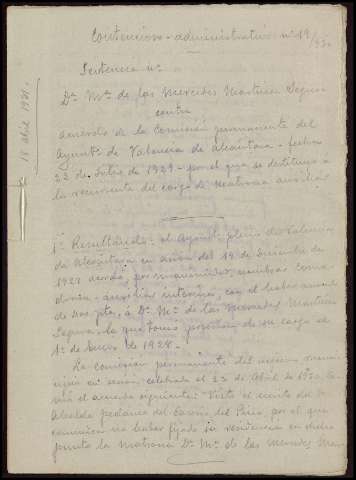 Contencioso-administrativo nº 19/930
Sentencia nº
Dª Mª de las Mercedes Martinez Segura
contra
acuerdo de la Comisión permanente del
Ayuntº de Valencia de Alcántara - fecha
23 de Julio de 1929 - por el que se destituyó a
la recurrente del cargo de Matrona auxiliar
15 abril 1931.
1º Resultando: el Ayuntº pleno de Valencia
de Alcántara en sesión del 19 de Diciembre de
1927 acordó, por unanimidad, nombrar coma-
drona-auxiliar interina, con el haber anual
de pta. á Dª Mª de las Mercedes Martinez
Segura, la que tomó posesión de su cargo de
1º de Enero de 1928.
La comisión permanente del mismo muni-
cipio en sesión celebrada el 23 de Abril de
el acuerdo siguiente: Visto el escrito del
Alcalde pedáneo del Caserío del Pino, por el que
comunica no haber fijado su residencia en dicho
punto la Matrona Dª Mª de las Mercedes Mar-